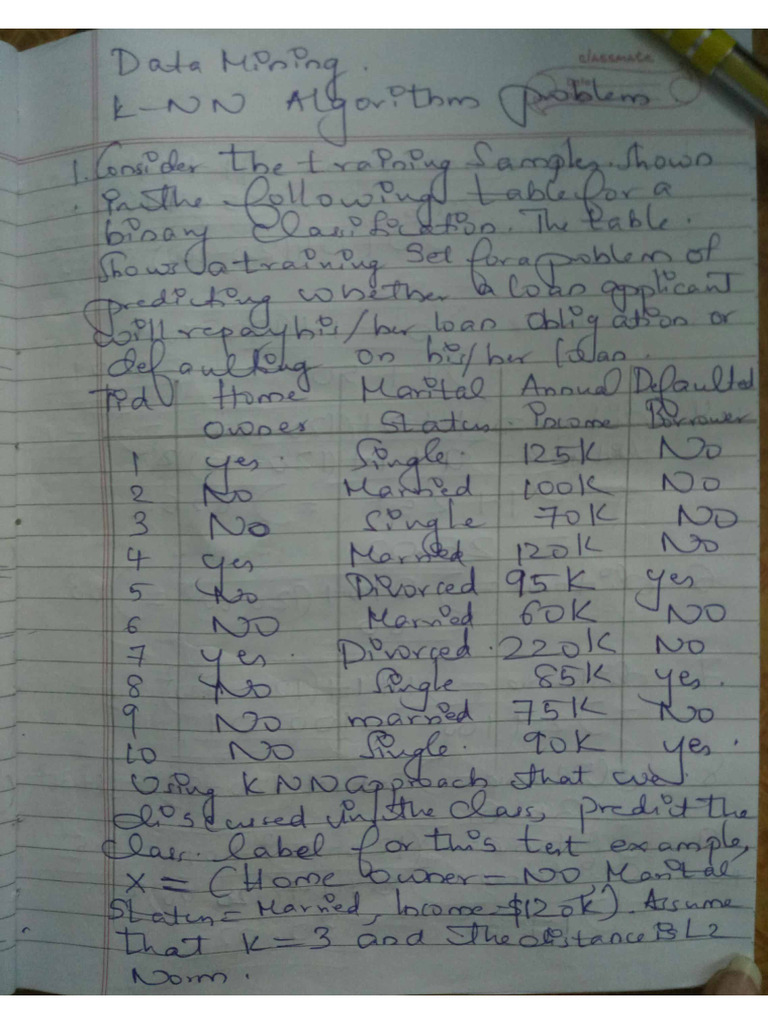 classmate
Data Mining.
K-NN Algorithm problem
1. Consider the training Samples shown
in the following table for a
binary Clasification. The table.
Shows a training Set for a problem of
predicting whether a loan applicant
will repay his/her loan obligation or
defaulting on his/her loan.
Tid Home Marital Annual Defaulted
owner Status. Income Borrower
1 yes. Single. 125K No
2 No Married 100K No
3 No Single 70K NO
4 yes Married 120K No
5 No Divorced 95K yes
6 NO Married 60K NO
7 yes. Divorced. 220K No
8 No Single 85K yes.
9 NO married 75K No
10 NO Single. 90K yes.
Using KNN approach that we
discussed in the class, predict the
class. label for this test example,
X = (Home owner = NO, Marital
Status = Married, Income = $120K). Assume
that K = 3 and the distance is L2
Norm.